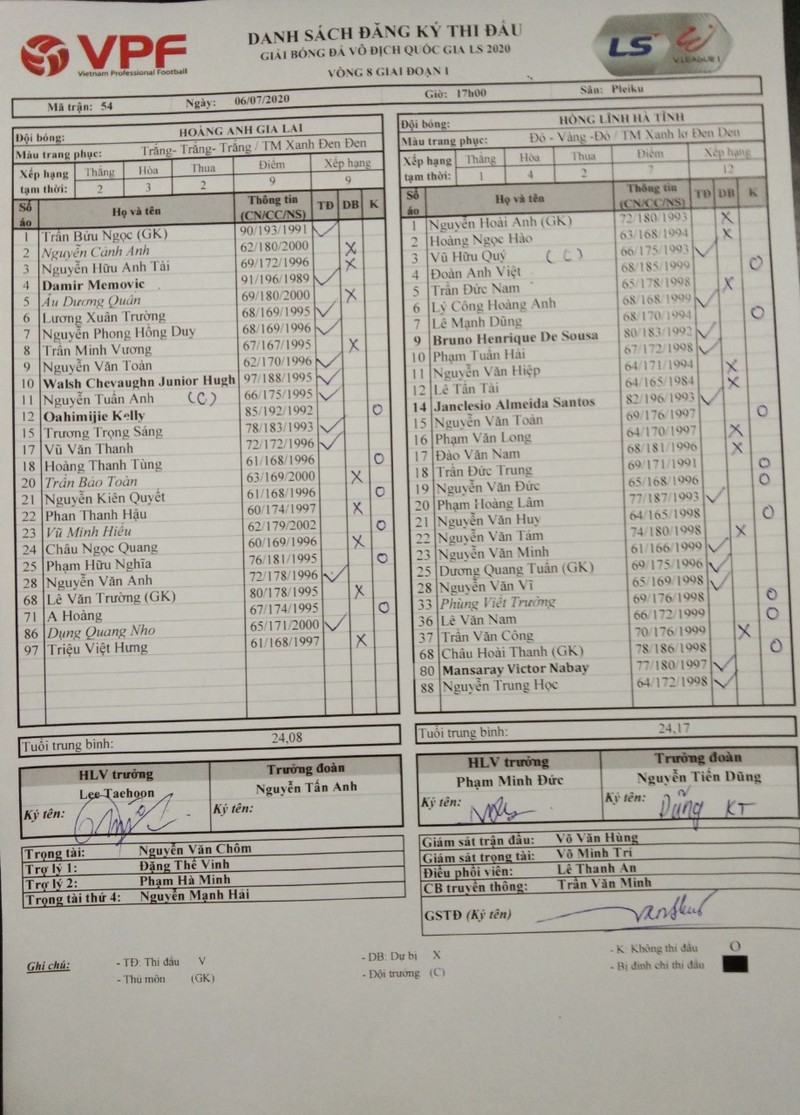 VPF
Vietnam Professional Football
DANH SÁCH ĐĂNG KÝ THI ĐẤU
GIẢI BÓNG ĐÁ VÔ ĐỊCH QUỐC GIA LS 2020
VÒNG 8 GIAI ĐOẠN 1
LS V.LEAGUE 1
Mã trận: 54 Ngày: 06/07/2020 Giờ: 17h00 Sân: Pleiku
Đội bóng: HOÀNG ANH GIA LAI
Màu trang phục: Trắng- Trắng- Trắng / TM Xanh Đen Đen
Xếp hạng tạm thời: Thắng Hòa Thua Điểm Xếp hạng
2 3 2 9 9
Số áo Họ và tên Thông tin (CN/CC/NS) TĐ DB K
1 Trần Bửu Ngọc (GK) 90/193/1991 V
2 Nguyễn Cảnh Anh 62/180/2000 X
3 Nguyễn Hữu Anh Tài 69/172/1996 X
4 Damir Memovic 91/196/1989 V
5 Âu Dương Quân 69/180/2000 X
6 Lương Xuân Trường 68/169/1995 V
7 Nguyễn Phong Hồng Duy 68/169/1996 V
8 Trần Minh Vương 67/167/1995 X
9 Nguyễn Văn Toàn 62/170/1996 V
10 Walsh Chevaughn Junior Hugh 97/188/1995 V
11 Nguyễn Tuấn Anh (C) 66/175/1995 V
12 Oahimijie Kelly 85/192/1992 O
15 Trương Trọng Sáng 78/183/1993 V
17 Vũ Văn Thanh 72/172/1996 V
18 Hoàng Thanh Tùng 61/168/1996 O
20 Trần Bảo Toàn 63/169/2000 X
21 Nguyễn Kiên Quyết 61/168/1996 O
22 Phan Thanh Hậu 60/174/1997 X
23 Vũ Minh Hiếu 62/179/2002 O
24 Châu Ngọc Quang 60/169/1996 X
25 Phạm Hữu Nghĩa 76/181/1995 O
28 Nguyễn Văn Anh 72/178/1996 V
68 Lê Văn Trường (GK) 80/178/1995 X
71 A Hoàng 67/174/1995 O
86 Dụng Quang Nho 65/171/2000 V
97 Triệu Việt Hưng 61/168/1997 X
Tuổi trung bình: 24,08
HLV trưởng Trưởng đoàn
Lee Taehoon Nguyễn Tấn Anh
Ký tên: Ký tên:
Trọng tài: Nguyễn Văn Chôm
Trợ lý 1: Đặng Thế Vinh
Trợ lý 2: Phạm Hà Minh
Trọng tài thứ 4: Nguyễn Mạnh Hải
Đội bóng: HỒNG LĨNH HÀ TĨNH
Màu trang phục: Đỏ - Vàng -Đỏ / TM Xanh lơ Đen Đen
Xếp hạng tạm thời: Thắng Hòa Thua Điểm Xếp hạng
1 4 2 7 12
Số áo Họ và tên Thông tin (CN/CC/NS) TĐ DB K
1 Nguyễn Hoài Anh (GK) 72/180/1993 X
2 Hoàng Ngọc Hào 63/168/1994 X
3 Vũ Hữu Quý (C) 66/175/1993 V
4 Đoàn Anh Việt 68/185/1999 O
5 Trần Đức Nam 65/178/1998 X
6 Lý Công Hoàng Anh 68/168/1999 V
7 Lê Mạnh Dũng 68/170/1994 O
9 Bruno Henrique De Sousa 80/183/1992 V
10 Phạm Tuấn Hải 67/172/1998 V
11 Nguyễn Văn Hiệp 64/171/1994 X
12 Lê Tấn Tài 64/165/1984 X
14 Janclesio Almeida Santos 82/196/1993 V
15 Nguyễn Văn Toản 69/176/1997 O
16 Phạm Văn Long 64/170/1997 X
17 Đào Văn Nam 68/181/1996 X
18 Trần Đức Trung 69/171/1991 O
19 Nguyễn Văn Đức 65/168/1996 O
20 Phạm Hoàng Lâm 77/187/1993 V
21 Nguyễn Văn Huy 64/165/1998 O
22 Nguyễn Văn Tám 74/180/1998 X
23 Nguyễn Văn Minh 61/166/1999 V
25 Dương Quang Tuấn (GK) 69/175/1996 V
28 Nguyễn Văn Vĩ 65/169/1998 V
33 Phùng Viết Trường 69/176/1998 O
36 Lê Văn Nam 66/172/1999 O
37 Trần Văn Công 70/176/1999 X
68 Châu Hoài Thanh (GK) 78/186/1998 O
80 Mansaray Victor Nabay 77/180/1997 V
88 Nguyễn Trung Học 64/172/1998 V
Tuổi trung bình: 24,17
HLV trưởng Trưởng đoàn
Phạm Minh Đức Nguyễn Tiến Dũng
Ký tên: Ký tên: Dũng KT
Giám sát trận đấu: Võ Văn Hùng
Giám sát trọng tài: Võ Minh Trí
Điều phối viên: Lê Thanh An
CB truyền thông: Trần Văn Minh
GSTĐ (Ký tên)
Ghi chú: - TĐ: Thi đấu V - DB: Dự bị X - K: Không thi đấu O
- Thủ môn (GK) - Đội trưởng (C) - Bị đình chỉ thi đấu